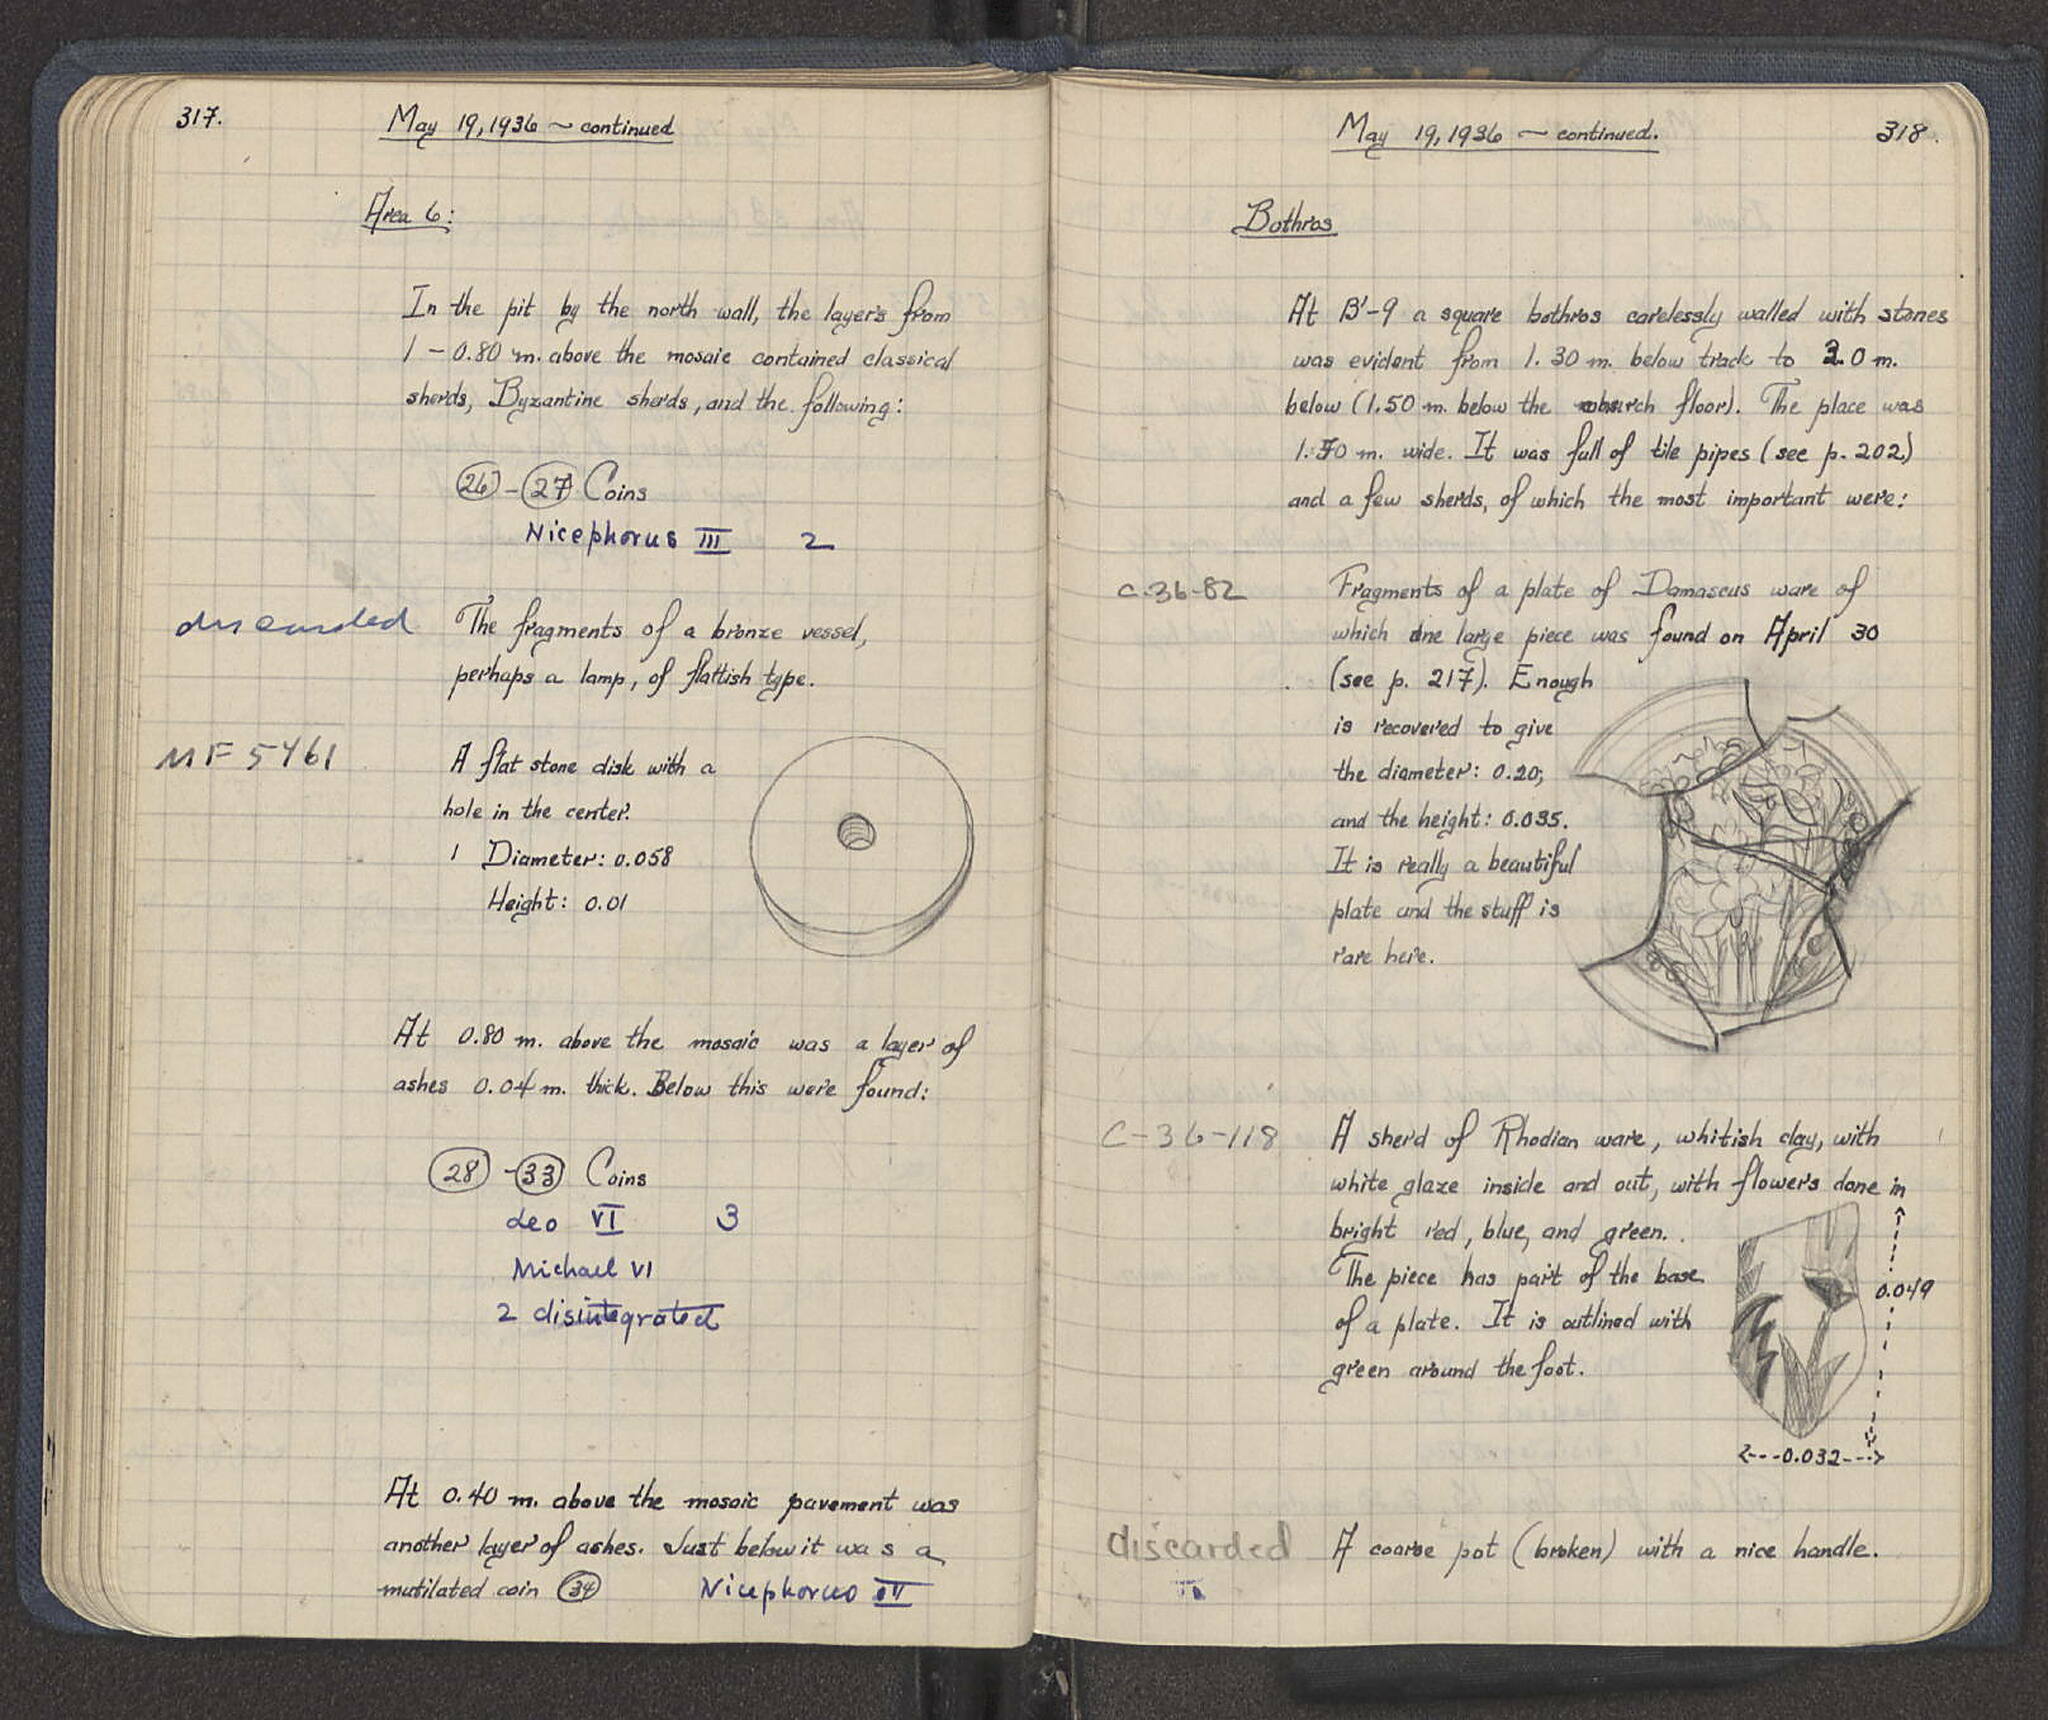 317.
May 19, 1936 ~ continued
Area 6:
In the pit by the north wall, the layers from
1 - 0.80 m. above the mosaic contained classical
sherds, Byzantine sherds, and the following:
26 - 27 Coins
Nicephorus III 2
discarded
The fragments of a bronze vessel,
perhaps a lamp, of flattish type.
MF 5461
A flat stone disk with a
hole in the center.
1 Diameter: 0.058
Height: 0.01
At 0.80 m. above the mosaic was a layer of
ashes 0.04 m. thick. Below this were found:
28 - 33 Coins
Leo VI 3
Michael VI
2 disintegrated
At 0.40 m. above the mosaic pavement was
another layer of ashes. Just below it was a
mutilated coin 34 Nicephorus
May 19, 1936 ~ continued.
318.
Bothros
At B'-9 a square bothros carelessly walled with stones
was evident from 1.30 m. below track to m.
below (1.50 m. below the church floor). The place was
m. wide. It was full of tile pipes (see p. 202)
and a few sherds, of which the most important were:
C-36-82
Fragments of a plate of Damascus ware of
which one large piece was found on April 30
(see p. 217). Enough
is recovered to give
the diameter: 0.20;
and the height: 0.035.
It is really a beautiful
plate and the stuff is
rare here.
C-36-118
A sherd of Rhodian ware, whitish clay, with
white glaze inside and out, with flowers done in
bright red, blue, and green.
The piece has part of the base
of a plate. It is outlined with
green around the foot.
0.049
0.032
discarded
A coarse pot (broken) with a nice handle.